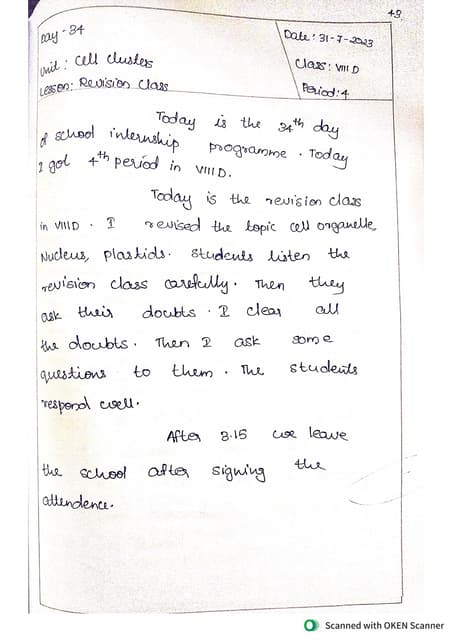 43
Day - 34
Date : 31-7-2023
Unit : Cell clusters
Class : VIII D
Lesson: Revision Class
Period: 4
Today is the 34th day
of school internship programme . Today
I got 4th period in VIII D.
Today is the revision class
in VIII D . I revised the topic cell organelle,
Nucleus, plastids. Students listen the
revision class carefully. Then they
ask their doubts . I clear all
the doubts . Then I ask some
questions to them . The students
respond well.
After 3.15 we leave
the school after signing the
attendence.
Scanned with OKEN Scanner